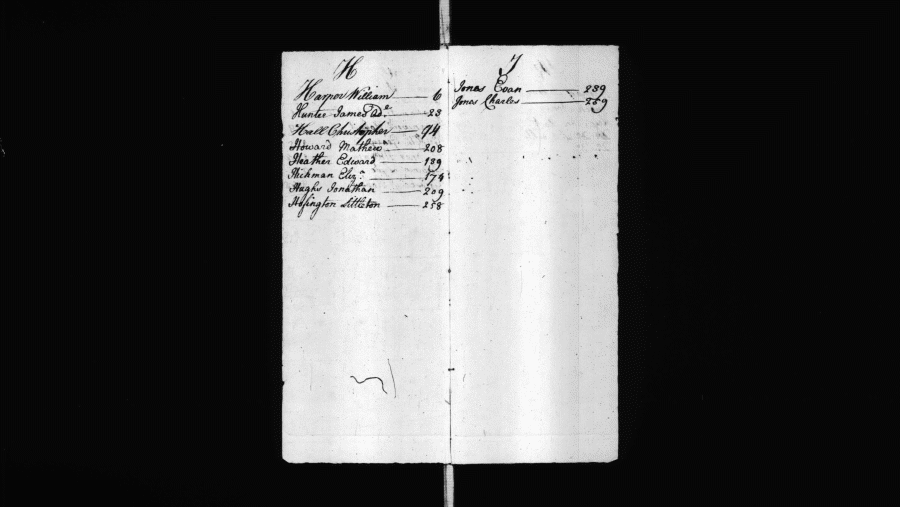 H
Harper William 6
Hunter James ad.e 23
Hall Christopher 94
Howard Mathew 208
Heather Edward 189
Hickman Eliz.a 174
Hughs Jonathan 209
Hofington Littleton 258
J
Jones Evan 239
Jones Charles 259